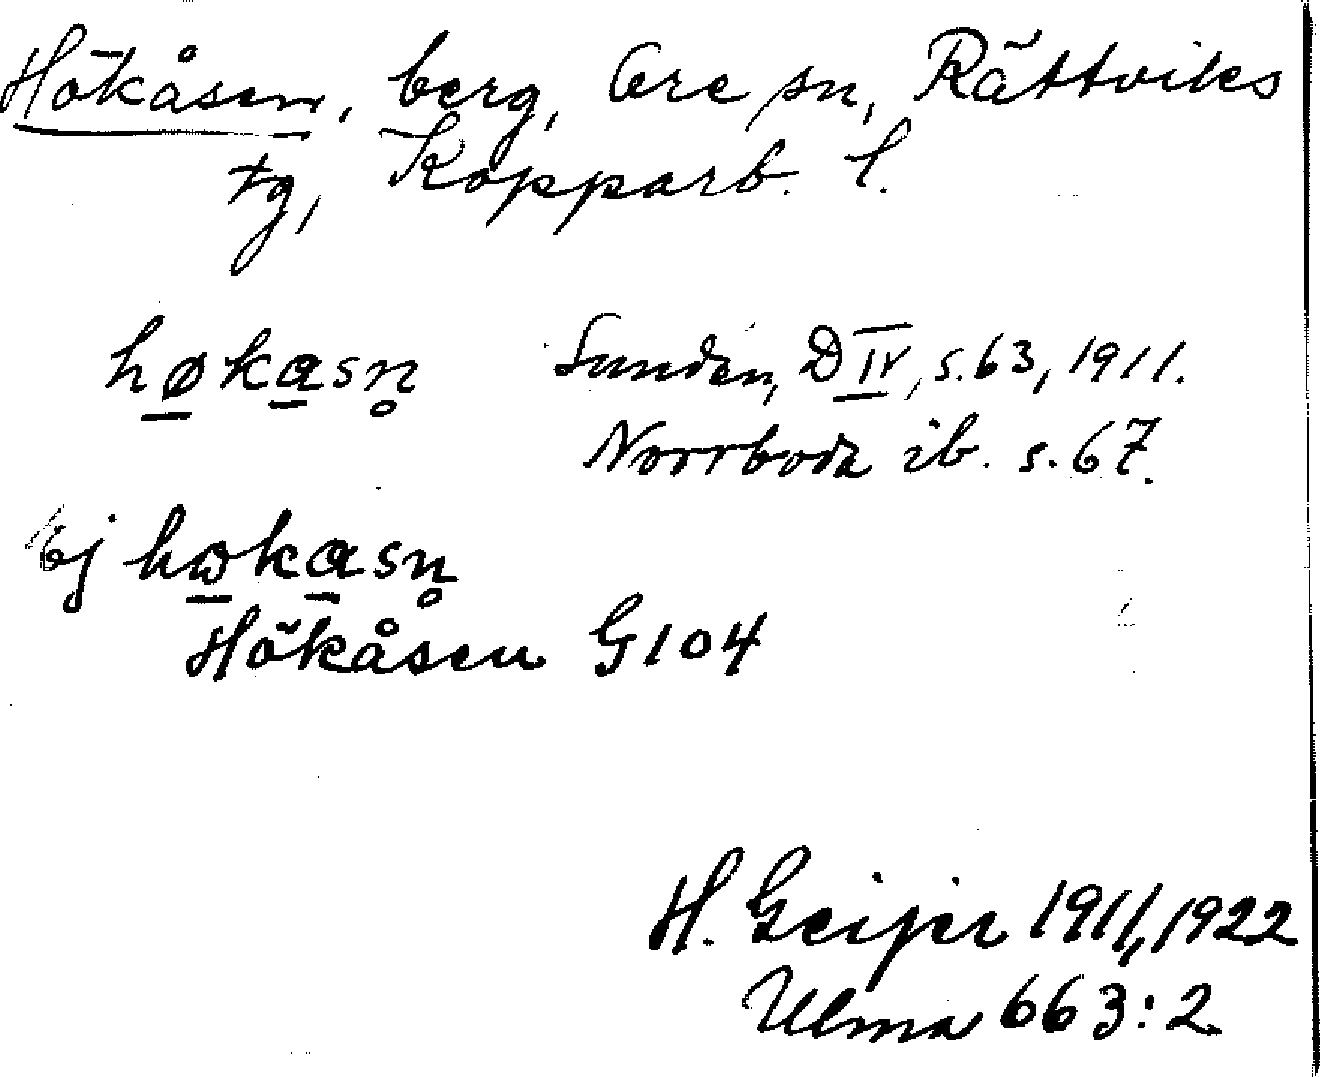 Hökåsen, berg, Ore sn, Rättviks
tg, Kopparb. l.
hø̲ka̲sn̥ Sunden, D IV, s. 63, 1911.
Norrboda ib. s. 67.
Ej hɷ̲ka̲sn̥
Hökåsen G 104
H. Geijer 1911, 1922
Ulma 663:2